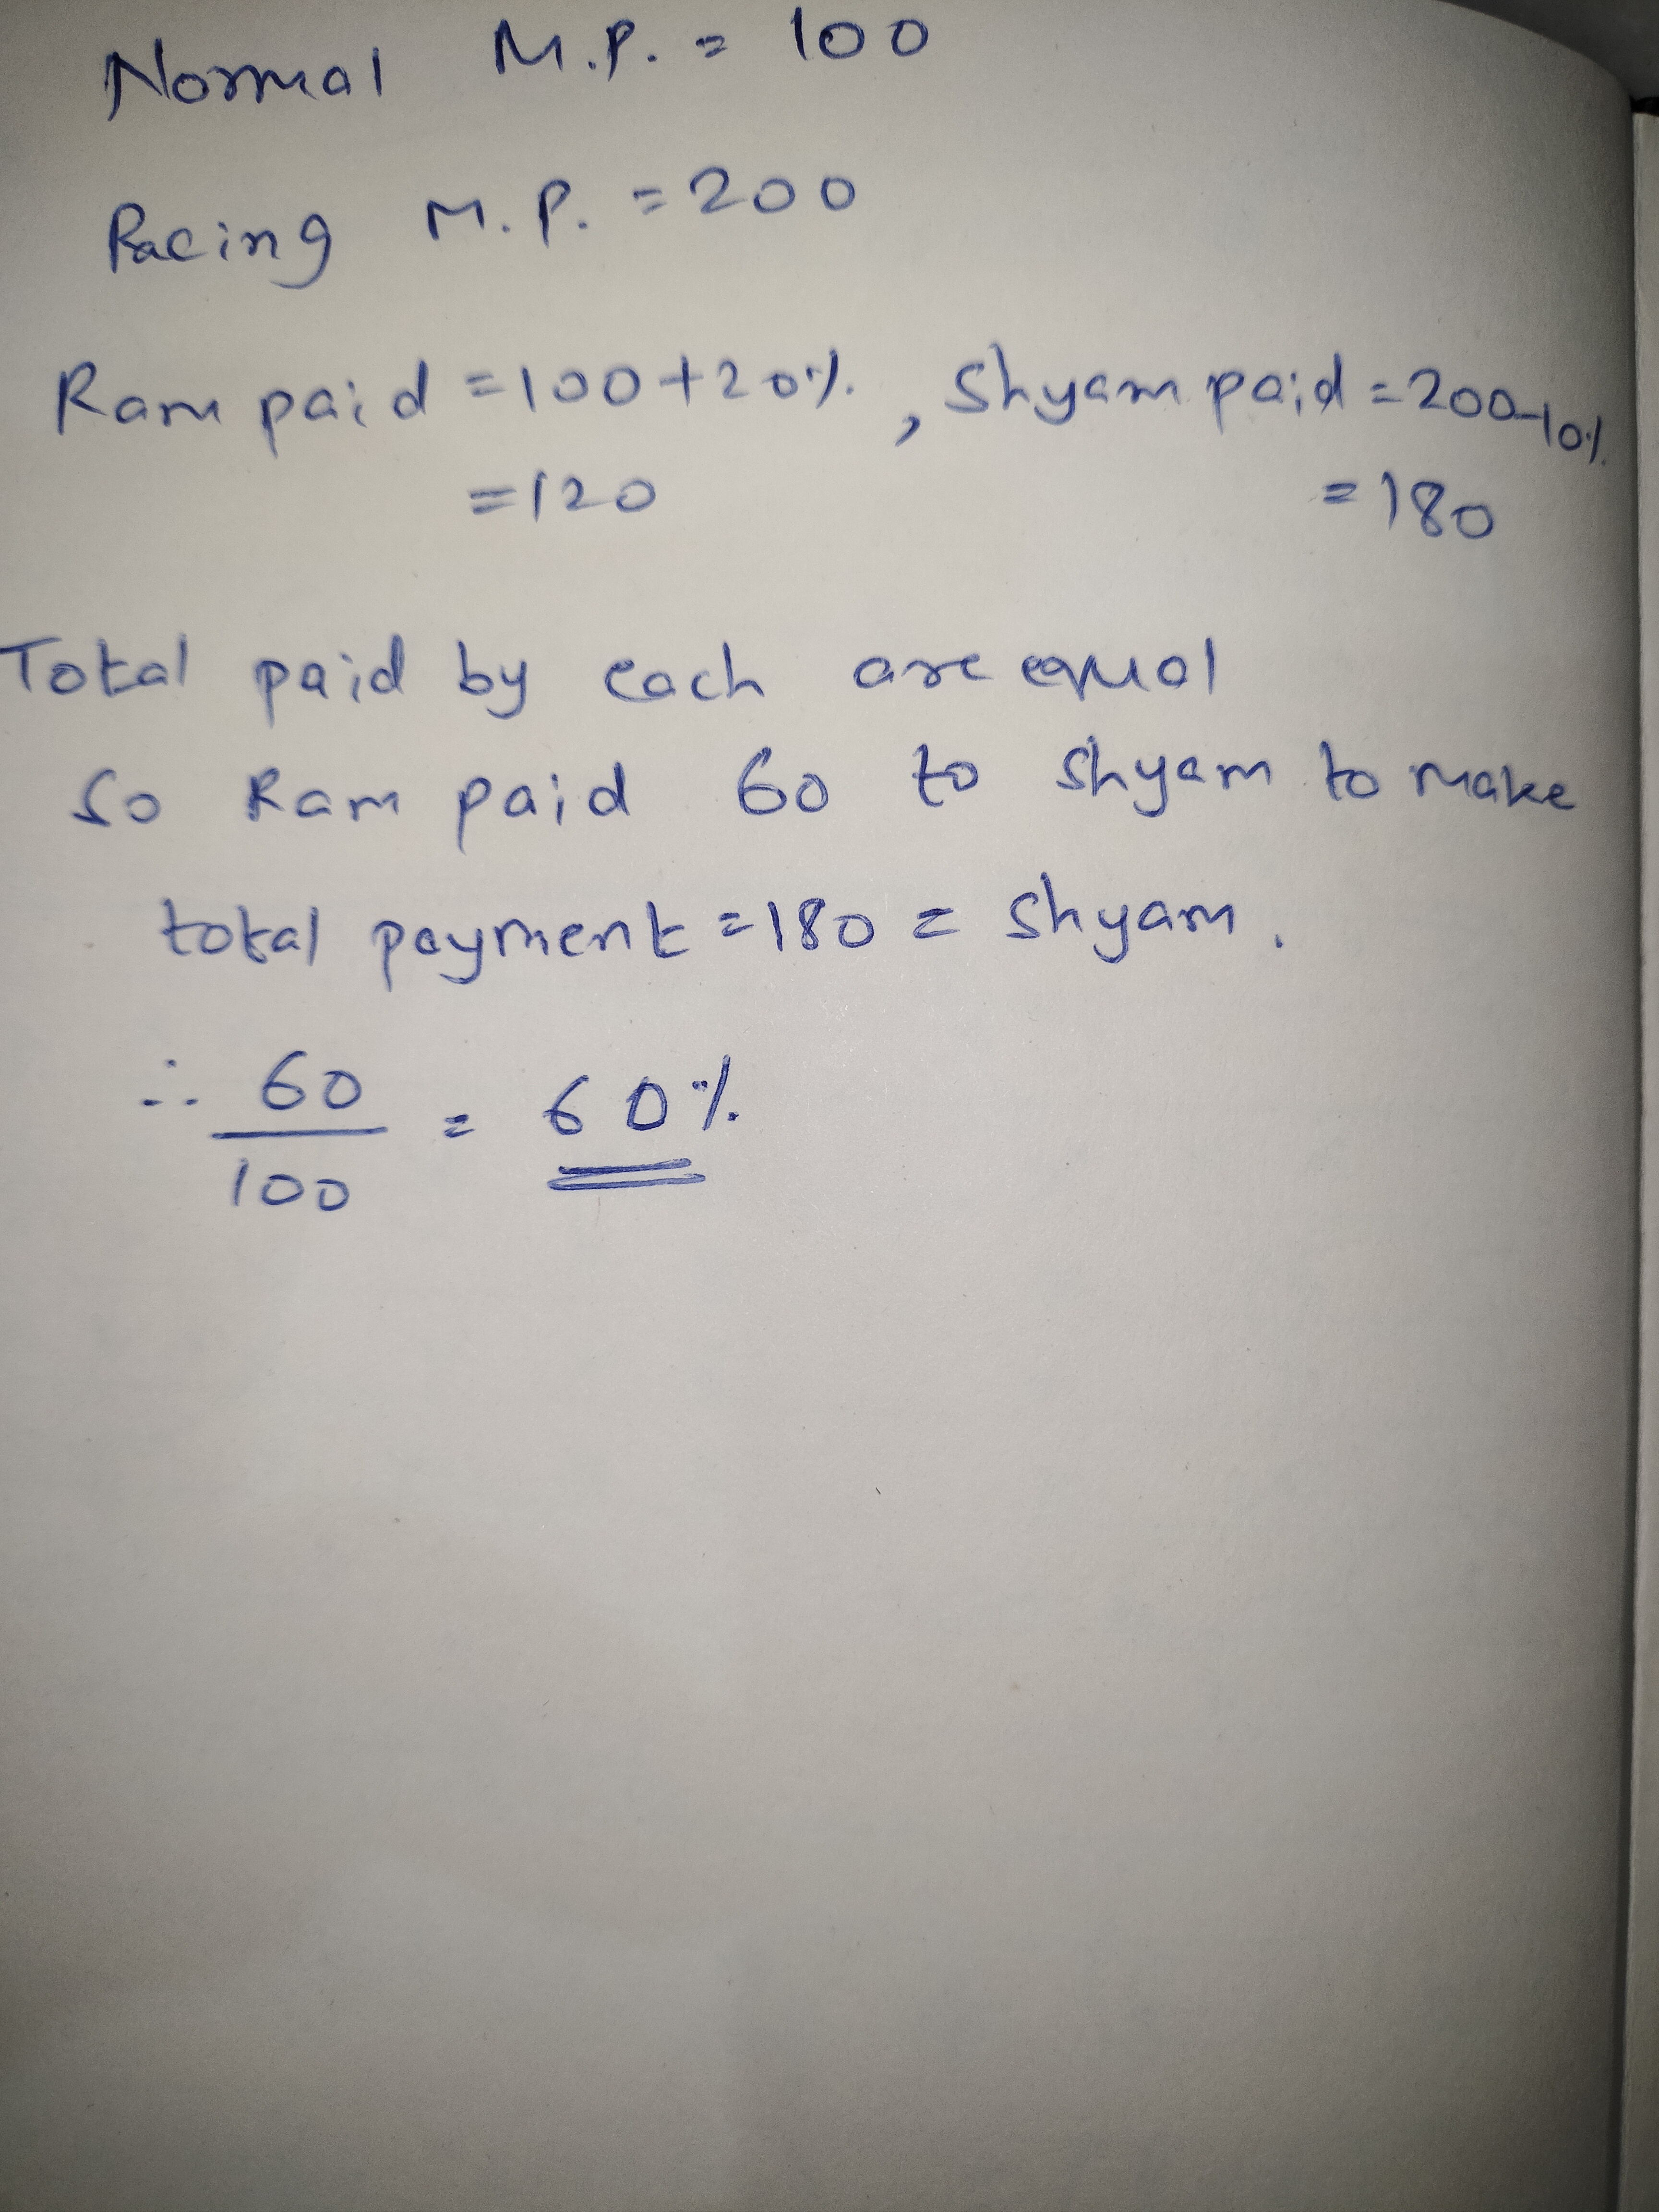 Normal M.P. = 100
Racing M.P. = 200
Ram paid = 100+20% , Shyam paid = 200-10%
= 120 = 180
Total paid by each are equal
So Ram paid 60 to Shyam to make
total payment = 180 = Shyam.
∴ 60/100 = 60%